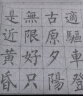 適驅車登
古原夕陽
無限好只
是近黃昏